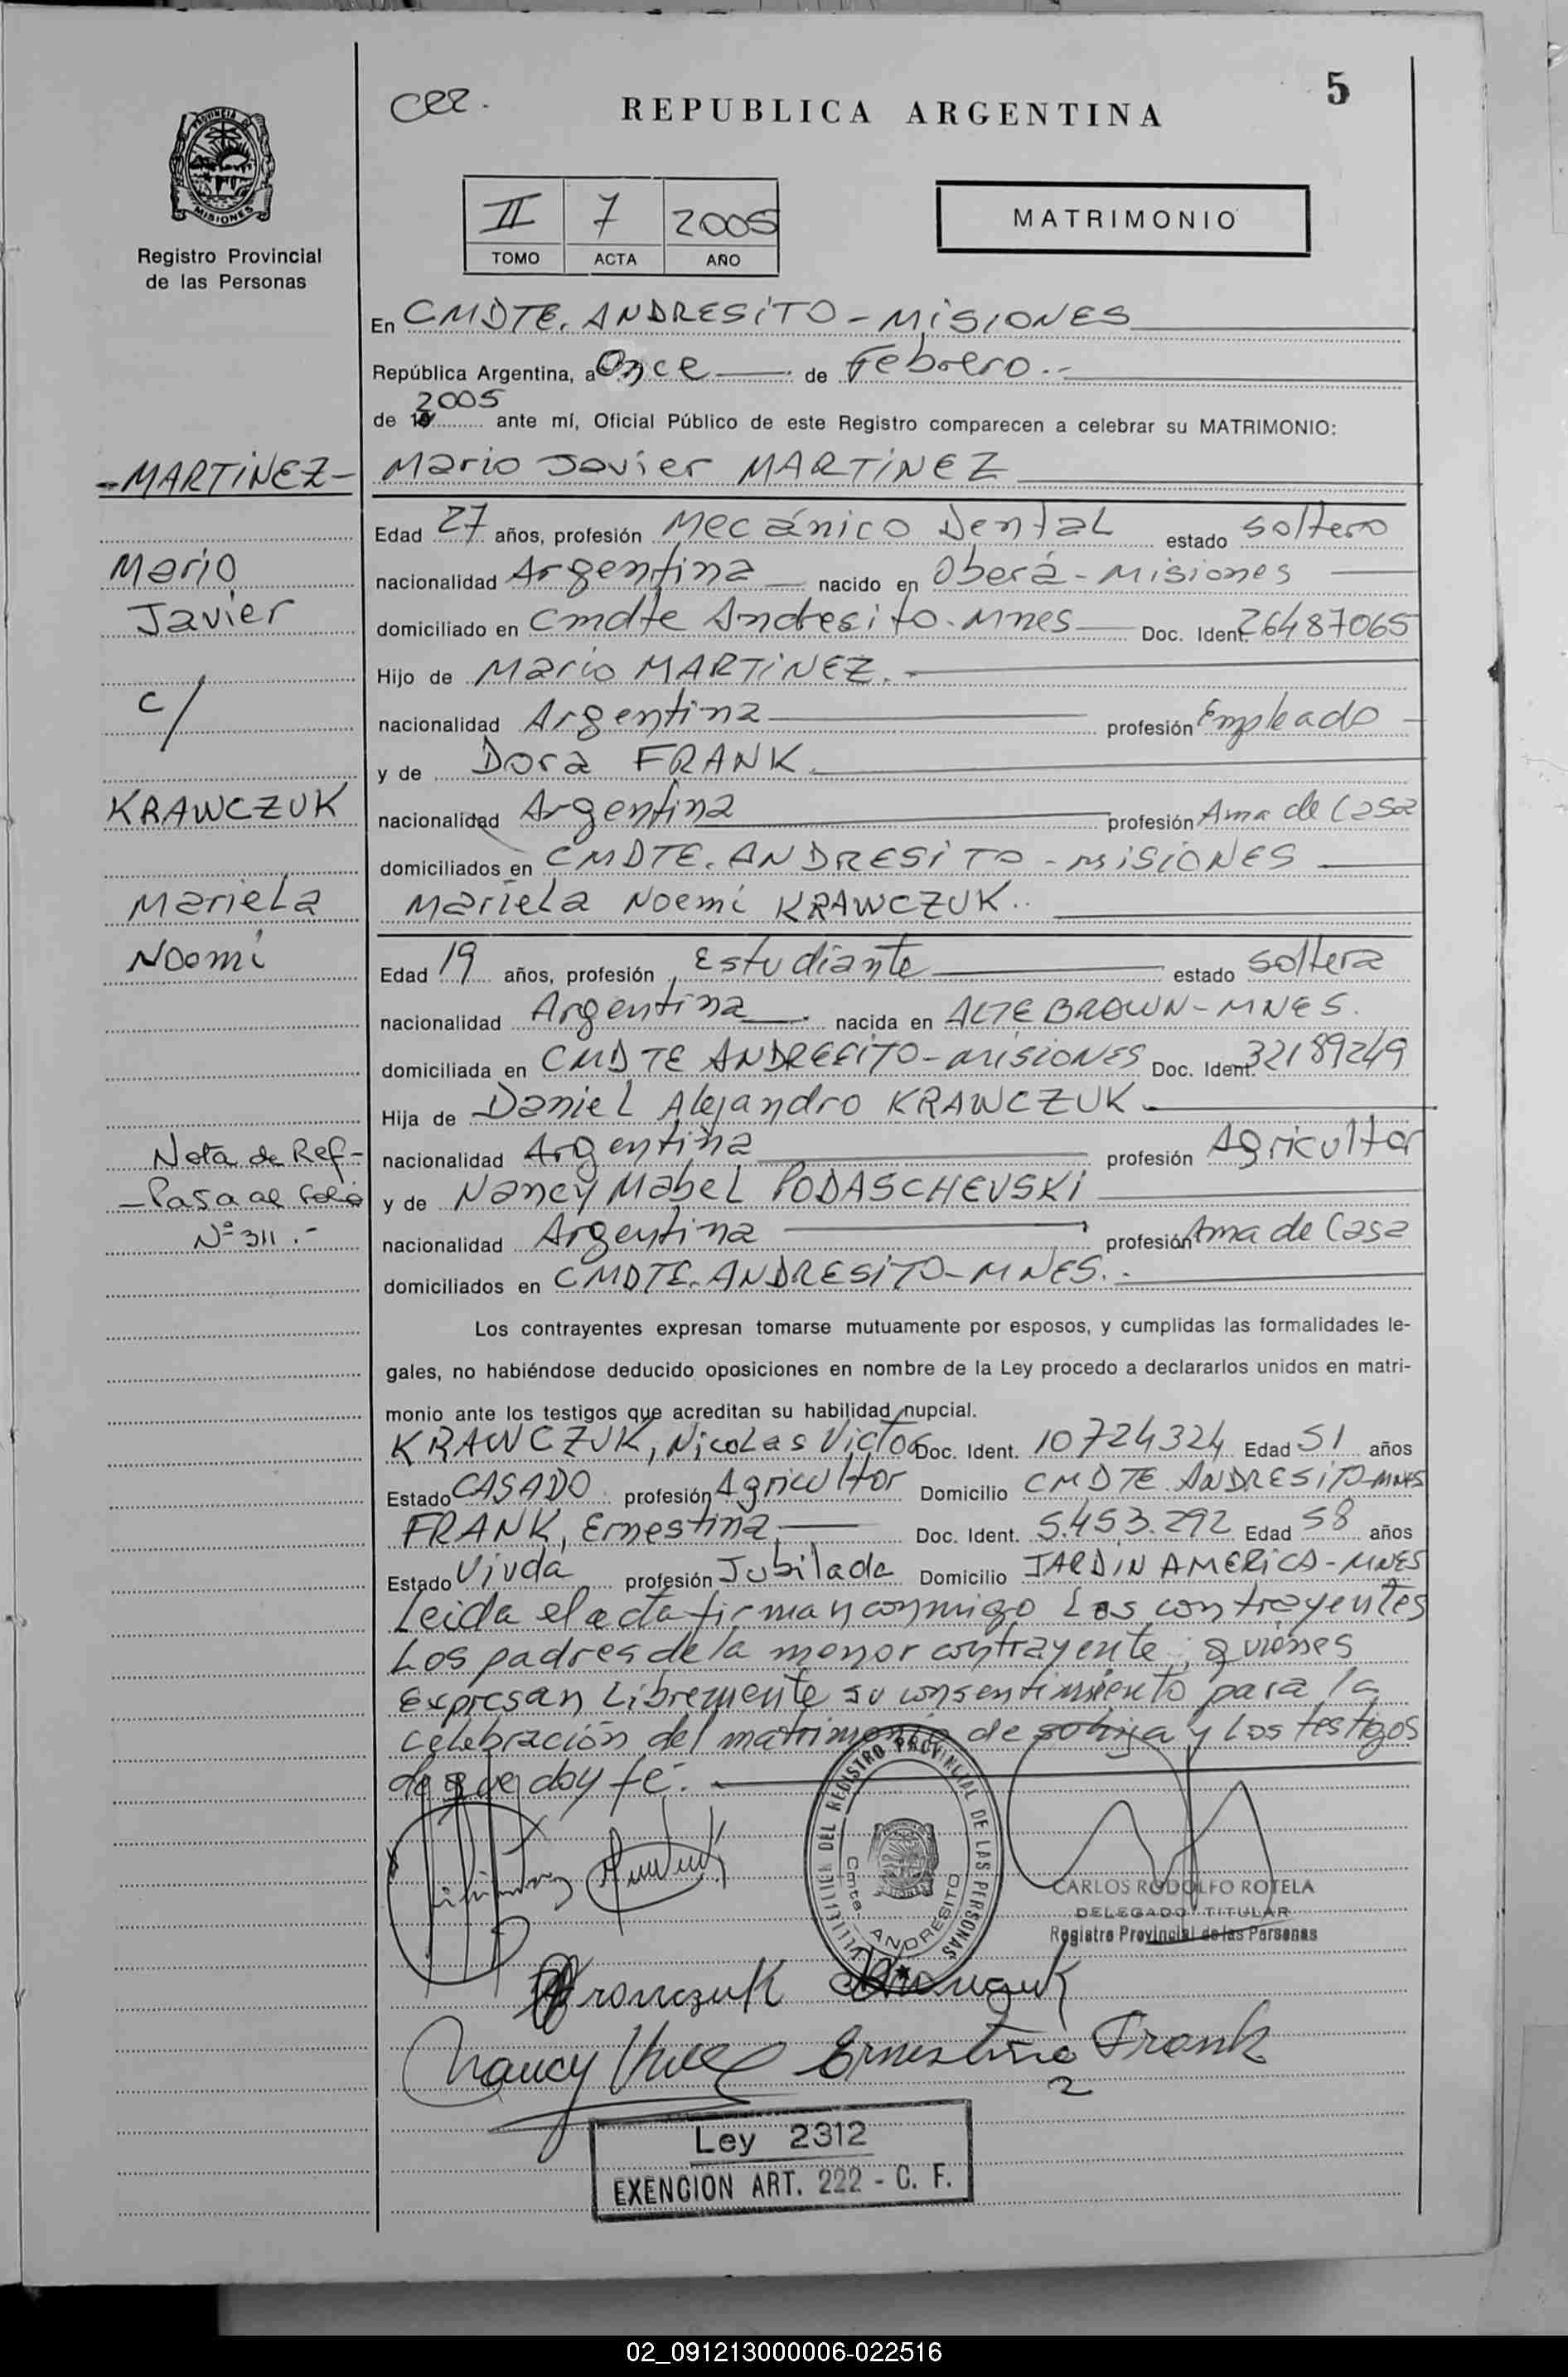 5
REPUBLICA ARGENTINA
PROVINCIA DE
MISIONES
Registro Provincial
de las Personas
MATRIMONIO
II 7 2005
TOMO ACTA AÑO
En CMDTE. ANDRESITO - MISIONES
República Argentina, a Once de Febrero.-
2005
de 19 ante mí, Oficial Público de este Registro comparecen a celebrar su MATRIMONIO:
-MARTINEZ-
Mario Javier MARTINEZ
Edad 27 años, profesión Mecánico Dental estado soltero
Mario
nacionalidad Argentina nacido en Oberá - Misiones
Javier
domiciliado en Cmdte Andresito - Mnes Doc. Ident. 26487065
Hijo de Mario MARTINEZ.-
c/
nacionalidad Argentina profesión Empleado
y de Dora FRANK
KRAWCZUK
nacionalidad Argentina profesión Ama de Casa
domiciliados en CMDTE. ANDRESITO - MISIONES
Mariela
Mariela Noemi KRAWCZUK..
Noemi
Edad 19 años, profesión Estudiante estado soltera
nacionalidad Argentina nacida en ALTE BROWN - MNES.
domiciliada en CMDTE ANDRESITO - MISIONES Doc. Ident. 32189249
Hija de Daniel Alejandro KRAWCZUK
Nota de Ref-
nacionalidad Argentina profesión Agricultor
- Pasa al folio
y de Nancy Mabel PODASCHEVSKI
Nº 311.-
nacionalidad Argentina profesión Ama de Casa
domiciliados en CMDTE. ANDRESITO - MNES.-
Los contrayentes expresan tomarse mutuamente por esposos, y cumplidas las formalidades le-
gales, no habiéndose deducido oposiciones en nombre de la Ley procedo a declararlos unidos en matri-
monio ante los testigos que acreditan su habilidad nupcial.
KRAWCZUK, Nicolas Victor Doc. Ident. 10724324 Edad 51 años
Estado CASADO profesión Agricultor Domicilio CMDTE. ANDRESITO-MNES
FRANK, Ernestina Doc. Ident. 5.453.292 Edad 58 años
Estado Viuda profesión Jubilada Domicilio JARDIN AMERICA - MNES
Leida el acta firman conmigo Los contrayentes
Los padres de la menor contrayente, quienes
expresan Libremente su consentimiento para la
celebración del matrimonio de su hija y Los testigos
de que doy fé.
DEL REGISTRO PROVINCIAL DE LAS PERSONAS
Cmte. ANDRESITO
CARLOS RODOLFO ROTELA
DELEGADO TITULAR
Registro Provincial de las Personas
Krawczuk
Nancy
Ernestina Frank
Ley 2312
EXENCION ART. 222 - C. F.
02_091213000006-022516